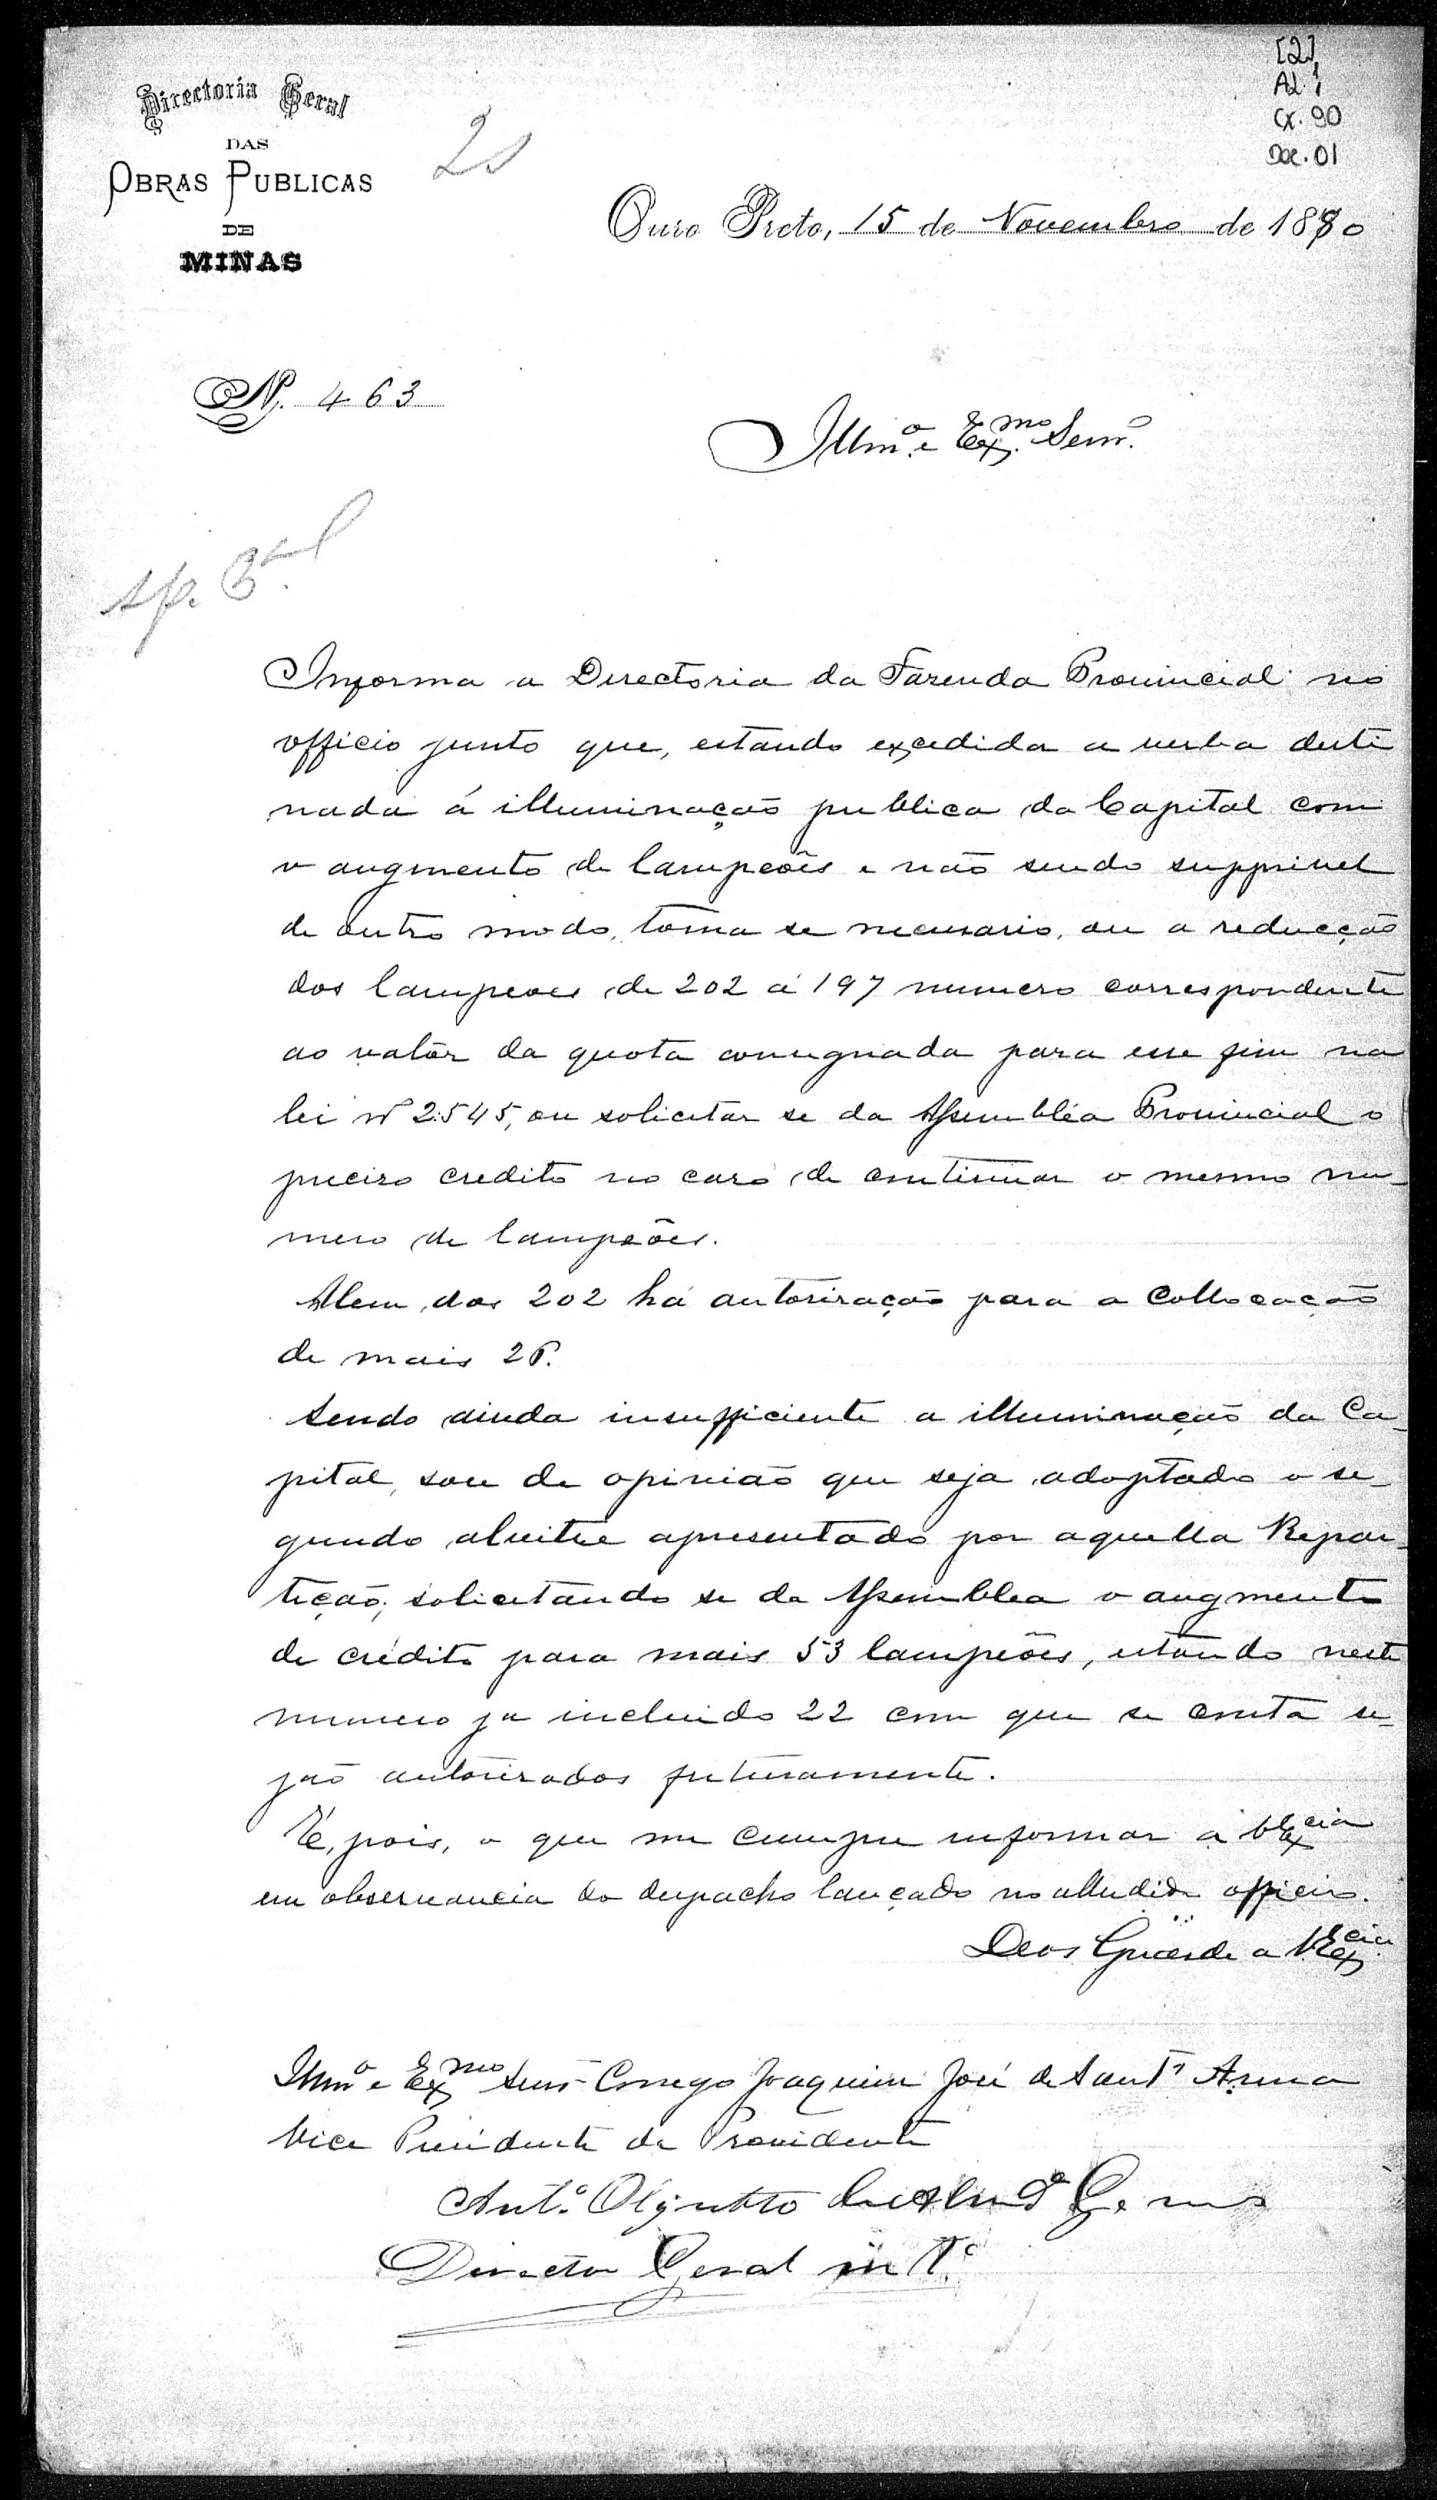 [2]
AL. 1
Cx. 90
Doc. 01
Directoria Geral
DAS
OBRAS PUBLICAS
DE
MINAS
Ouro Preto, 15 de Novembro de 1880
N. 463
Illmº. e Exmo. Senr.
Informa a Directoria da Fazenda Provincial no
officio junto que, estando excedida a verba desti
nada á illuminação publica da Capital com
o augmento de lampeões e não sendo supprivel
de outro modo, torna se necessario, ou a reducção
dos lampeoes de 202 á 197 numero correspondente
ao valôr da quota consignada para esse fim na
lei nº 2545, ou solicitar se da Assembléa Provincial o
preciso credito no caso de continuar o mesmo nu-
mero de lampeões.
Alem dos 202 há autorisação para a collocação
de mais 26.
Sendo ainda insufficiente a illuminação da Ca-
pital, sou de opinião que seja adoptado o se-
gundo alvitre apresentado por aquella Repar-
tição, solicitando se da Assemblea o augmento
de crédito para mais 53 lampeões, estando neste
numero ja incluido 22 com que se conta se-
jão autorisados futuramente.
É, pois, o que me cumpre informar a V. Excia
em observancia do despacho lançado no alludido officio.
Deos Guarde a V. Excia.
Illmº e Exmo Senr Conego Joaquim José de Sant' Anna
Vice Presidente da Providente
Antº. Olyntho
Director Geral intº.